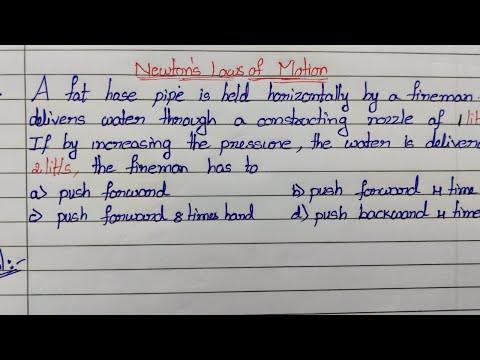 Newton's Laws of Motion
A fat hose pipe is held horizontally by a fireman.
delivers water through a constructing nozzle of 1 lit
If by increasing the pressure, the water is delivere
2 lit/s, the fireman has to
a) push forward b) push forward 4 time
c) push forward 8 times hard d) push backward 4 time